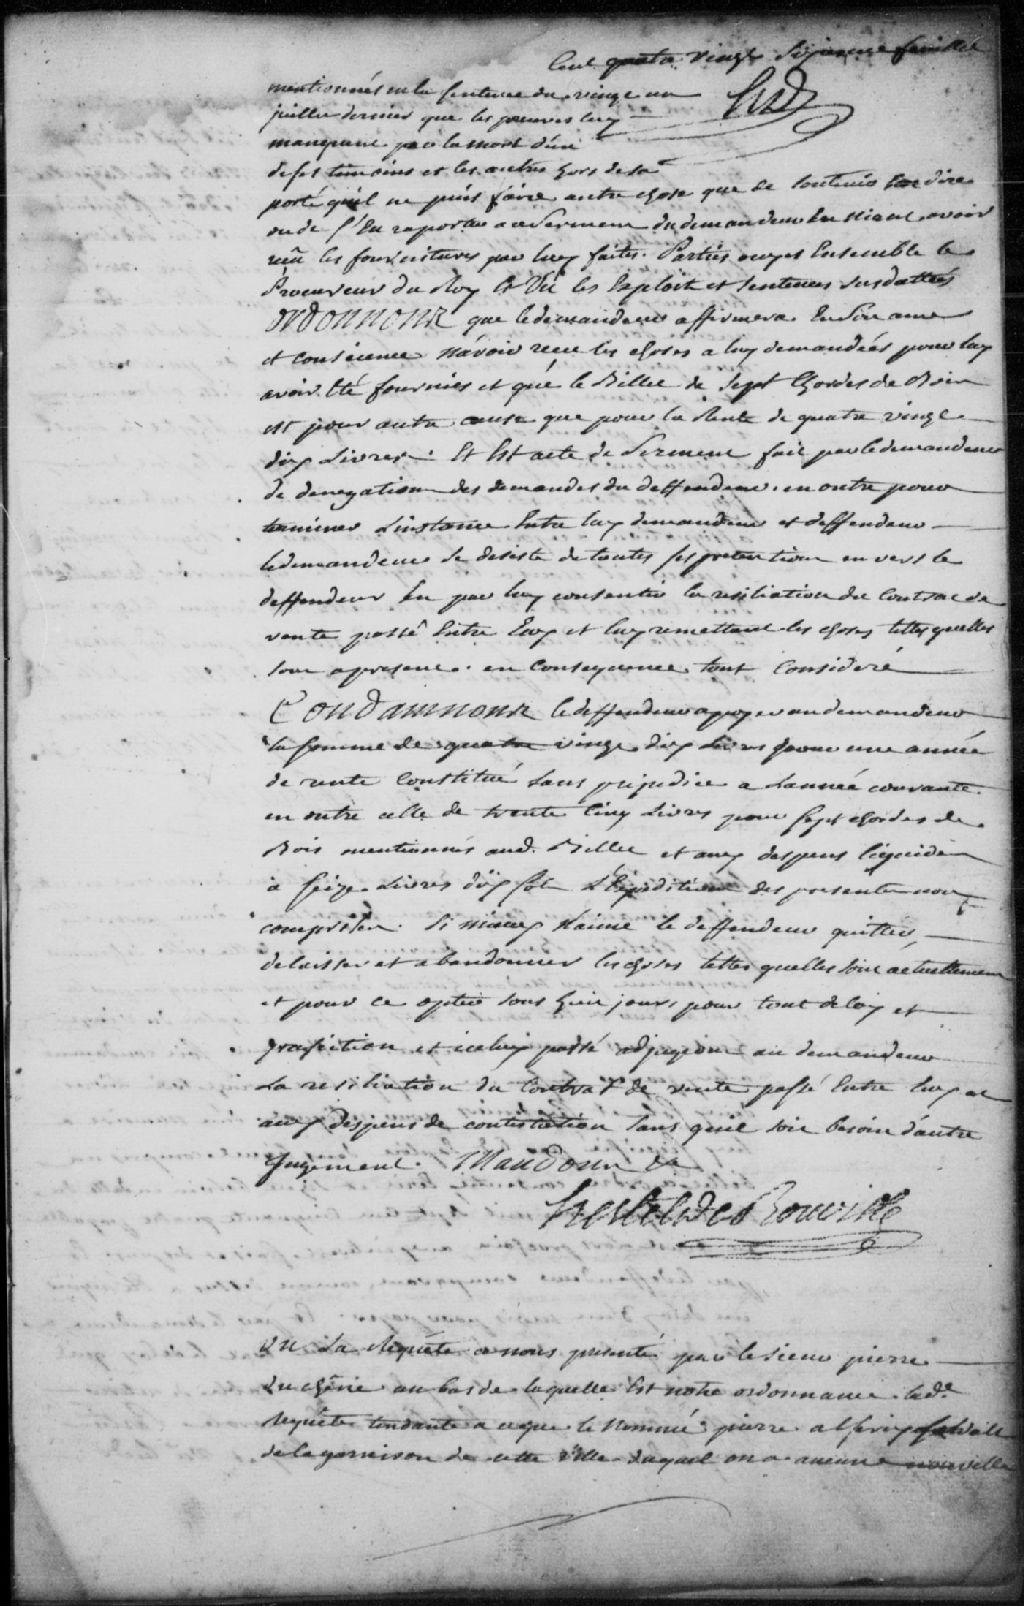 Cent quatre vingt feuillet
mentionnés en la sentence du vingt un
juillet dernier que les preuves luy
manquent par la mort d'un
de ses temoins et les autres hors de sa
porté qu'il ne peut faire autre chose que de soutenir son dire
ou de s'En raporter au serment du demandeur En niant avoir
reçû les fournitures par luy faites. Parties ouyes Ensemble le
Procureur du Roy Et Vû les Exploit et sentences susdattées
Ordonnons que le demandeur affirmera En son ame
et conscience n'avoir reçu les choses a luy demandées pour luy
avoir Eté fournies et que le Billet de sept Chordes de Bois
est pour autre cause que pour la Rente de quatre vingt
dix Livres. Et Est acte de serment fait par le demandeur
de denegation des demandes du deffendeur. en outre pour
terminer L'instance Entre luy demandeur et deffendeur
le demandeur se desiste de toutes ses pretention envers le
deffendeur En par luy consentir la resiliation du Contrac de
vente passé Entre Eux et luy remettant les choses telles quelles
sont apresent. en Consequence tout Consideré
Condamnons le deffendeur a payer au demandeur
la somme de quatre vingt dix Livres pour une année
de rente Constitué sans prejudice a L'année courante.
en outre celle de trente Cinq Livres pour sept Chordes de
Bois mentionnés aud. Billet et aux despens liquidés
à seize Livres dix sols L'Expedition des presentes non
comprises. si mieux n'aime le deffendeur quitter,
delaisser et abandonner les choses telles quelles sont actuellement
et pour ce opter sous huit jours pour tout delay et
prefixtion et iceluy passé adjugeons au demandeur
La resiliation du Contrat de vente passé Entre Eux et
aux despens de contestation sans qu'il soit besoin d'autre
Jugement. Mandons &a
hertel de Rouville
Vu La Requête a nous presenté par le sieur pierre
au bas de laquelle Est notre ordonnance. lade.
requête tendante a ce que le Nommé pierre soldat
de la garnison de cette Ville duquel on a aucune nouvelle